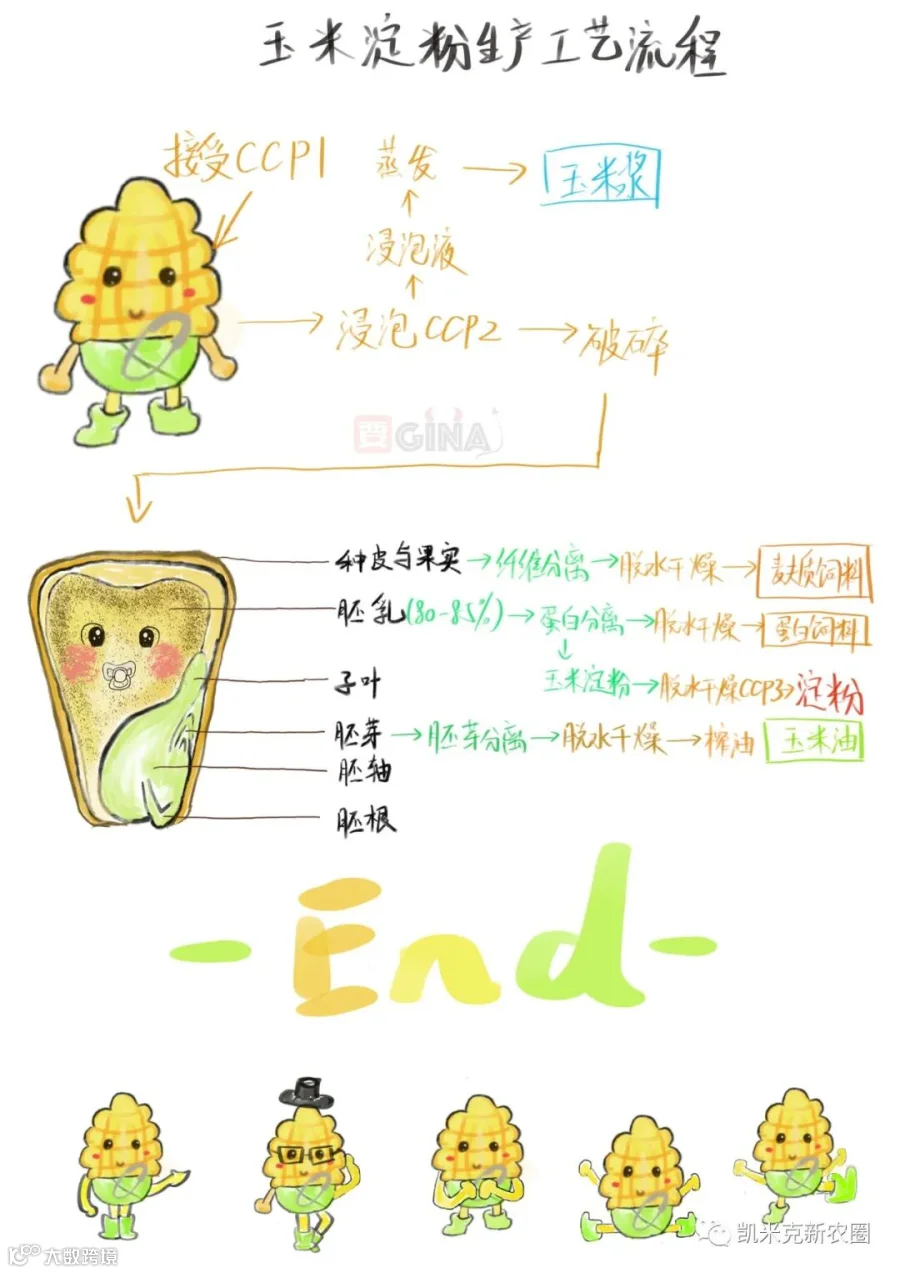 玉米淀粉生产工艺流程
接受CCP1 蒸发 → 玉米浆
浸泡液
浸泡CCP2 → 破碎
贾GINA
种皮与果实 → 纤维分离 → 脱水干燥 → 麸质饲料
胚乳(80-85%) → 蛋白分离 → 脱水干燥 → 蛋白饲料
玉米淀粉 → 脱水干燥CCP3 → 淀粉
子叶
胚芽 → 胚芽分离 → 脱水干燥 → 榨油 玉米油
胚轴
胚根
-End-
凯米克新农圈
大数跨境